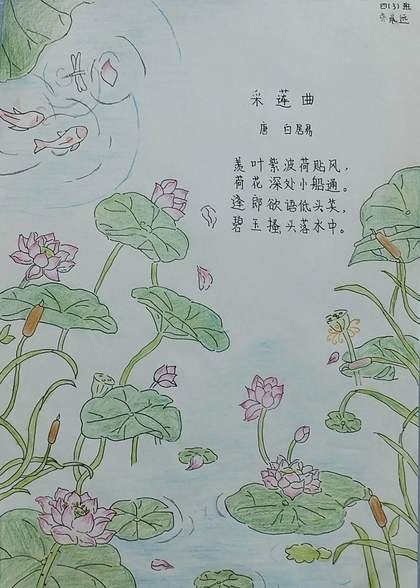 四(3)班
采莲曲
唐 白居易
菱叶紫波荷贴风,
荷花深处小船通。
逢郎欲语低头笑,
碧玉搔头落水中。